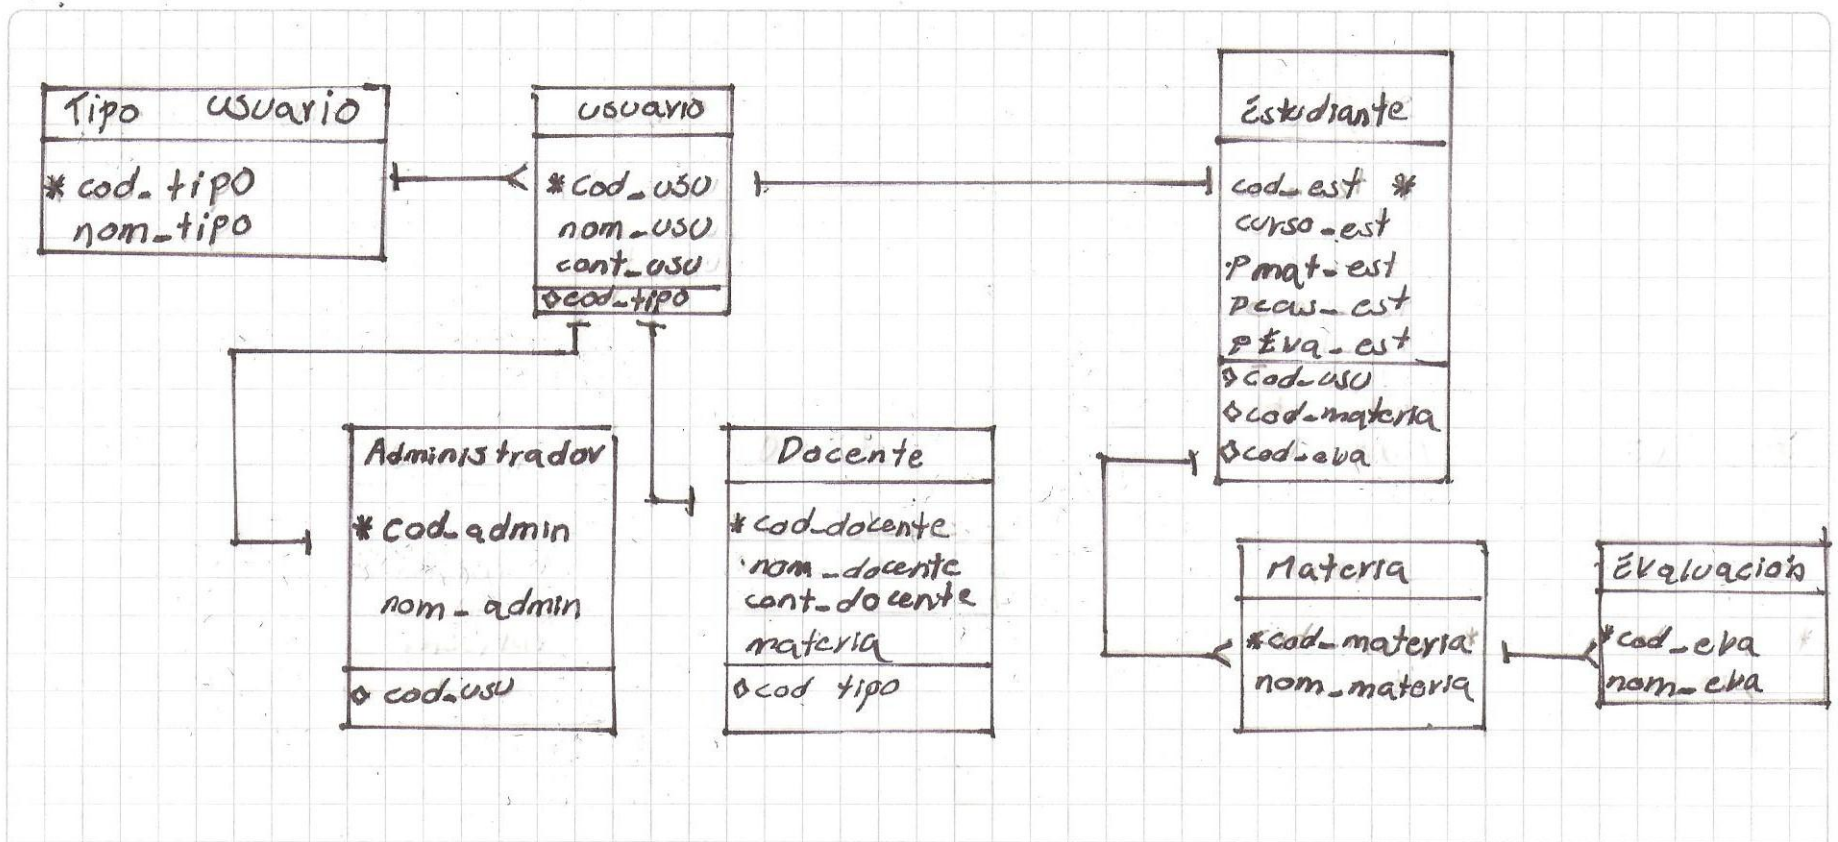 Tipo usuario
* cod_tipo
nom_tipo
usuario
* cod_usu
nom_usu
cont_usu
◇ cod_tipo
Estudiante
cod_est *
curso_est
Pmat_est
est
PEva_est
◇ cod_usu
◇ cod_materia
◇ cod_eva
Administrador
* cod_admin
nom_admin
◇ cod_usu
Docente
* cod_docente
nom_docente
cont_docente
materia
◇ cod tipo
Materia
* cod_materia
nom_materia
Evaluación
* cod_eva
nom_eva